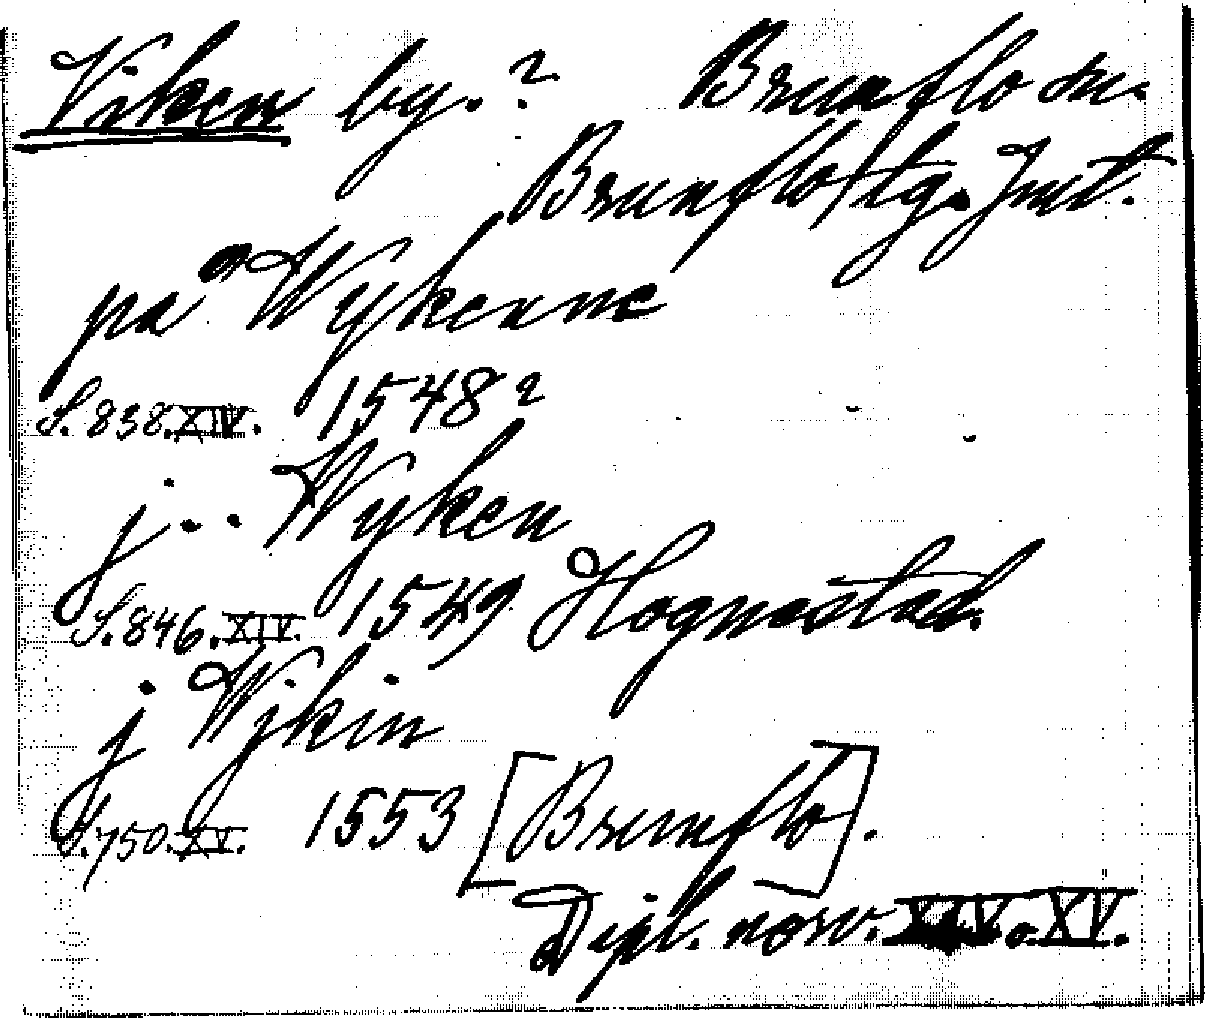 Viken by. ? Brunflo sn.
Brunflo tg. Jmt.
på Wykenne
S. 838. XIV. 1548?
j . . Wyken
S. 846. XIV. 1549 Hognastad.
j Wjkin
S. 750. XV. 1553 [Brunflo].
Dipl. norv. XIV o. XV.